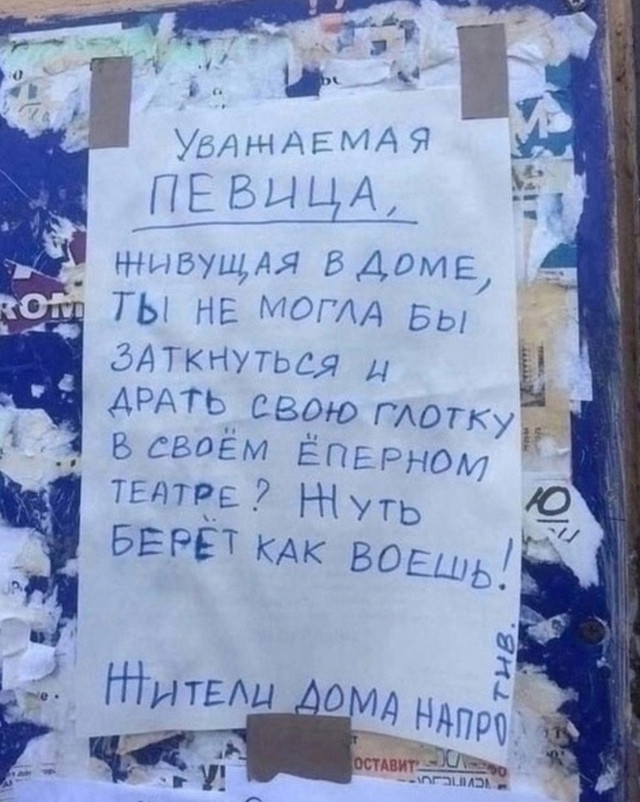 УВАЖАЕМАЯ
ПЕВИЦА,
ЖИВУЩАЯ В ДОМЕ,
ТЫ НЕ МОГЛА БЫ
ЗАТКНУТЬСЯ И
ДРАТЬ СВОЮ ГЛОТКУ
В СВОЁМ ЁПЕРНОМ
ТЕАТРЕ? ЖУТЬ
БЕРЁТ КАК ВОЕШЬ!
ЖИТЕЛИ ДОМА НАПРОТИВ.
Ю
ОСТАВИТ